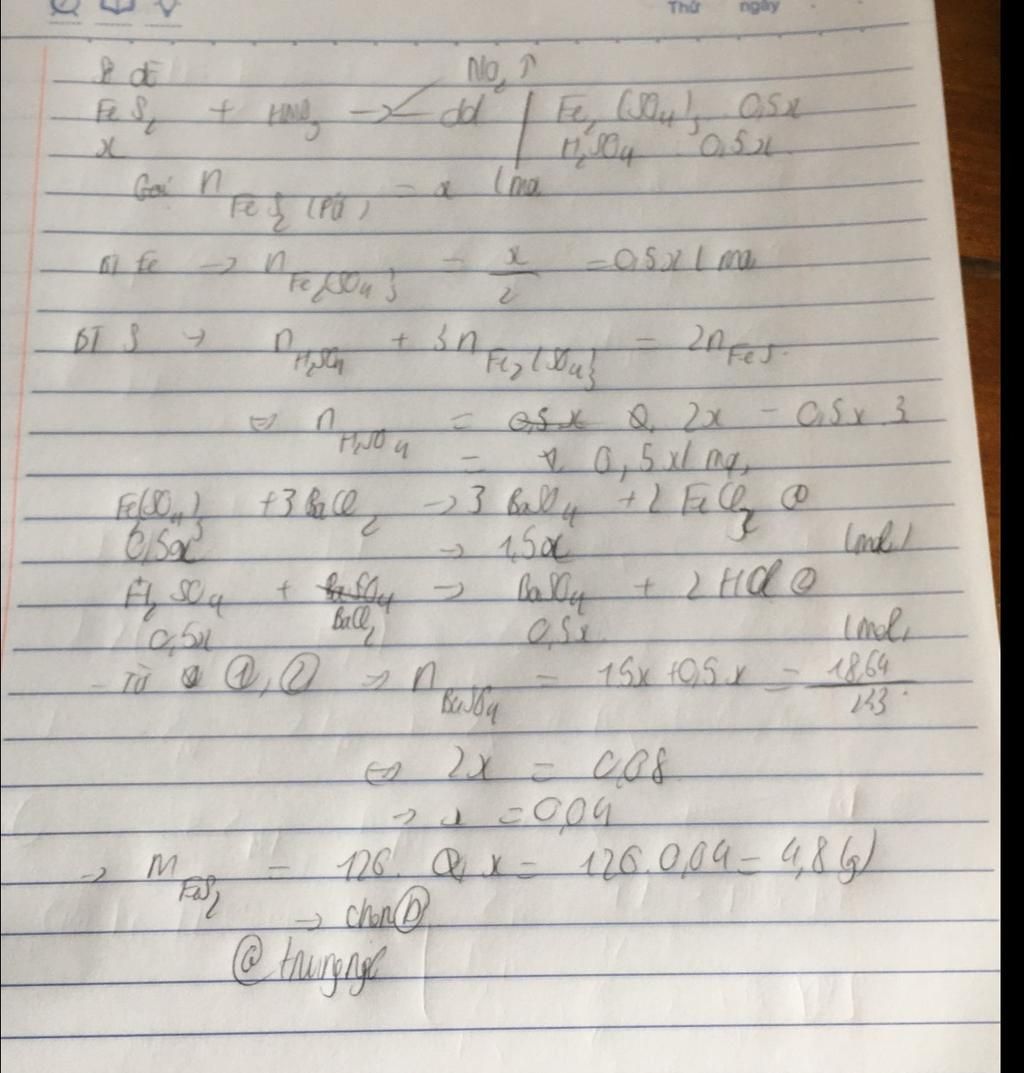 Thứ ngày
S đồ NO2 ↑
FeS2 + HNO3 → dd | Fe2(SO4)3 0,5x
x H2SO4 0,5x
Gọi n FeS2 (PỨ) = x (mol
BT Fe → n Fe2(SO4)3 = x/2 = 0,5x (mol
BT S → n H2SO4 + 3n Fe2(SO4)3 = 2n FeS
⇔ n H2SO4 = 2x - 0,5x.3
= 0,5x (mol)
Fe(SO4)3 + 3BaCl2 → 3BaSO4 + 2FeCl3 ①
0,5x → 1,5x (mol)
H2SO4 + BaCl2 → BaSO4 + 2HCl ②
0,5x 0,5x (mol)
- Từ ①, ② ⇒ n BaSO4 = 1,5x + 0,5x = 18,64/233
⇔ 2x = 0,08
→ x = 0,04
→ m FeS2 = 126. x = 126.0,04 = 4,8 (g)
→ chọn Ⓓ